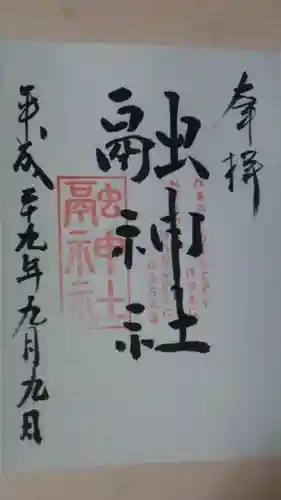 奉拝
融神社
融神社
平成二十九年九月九日